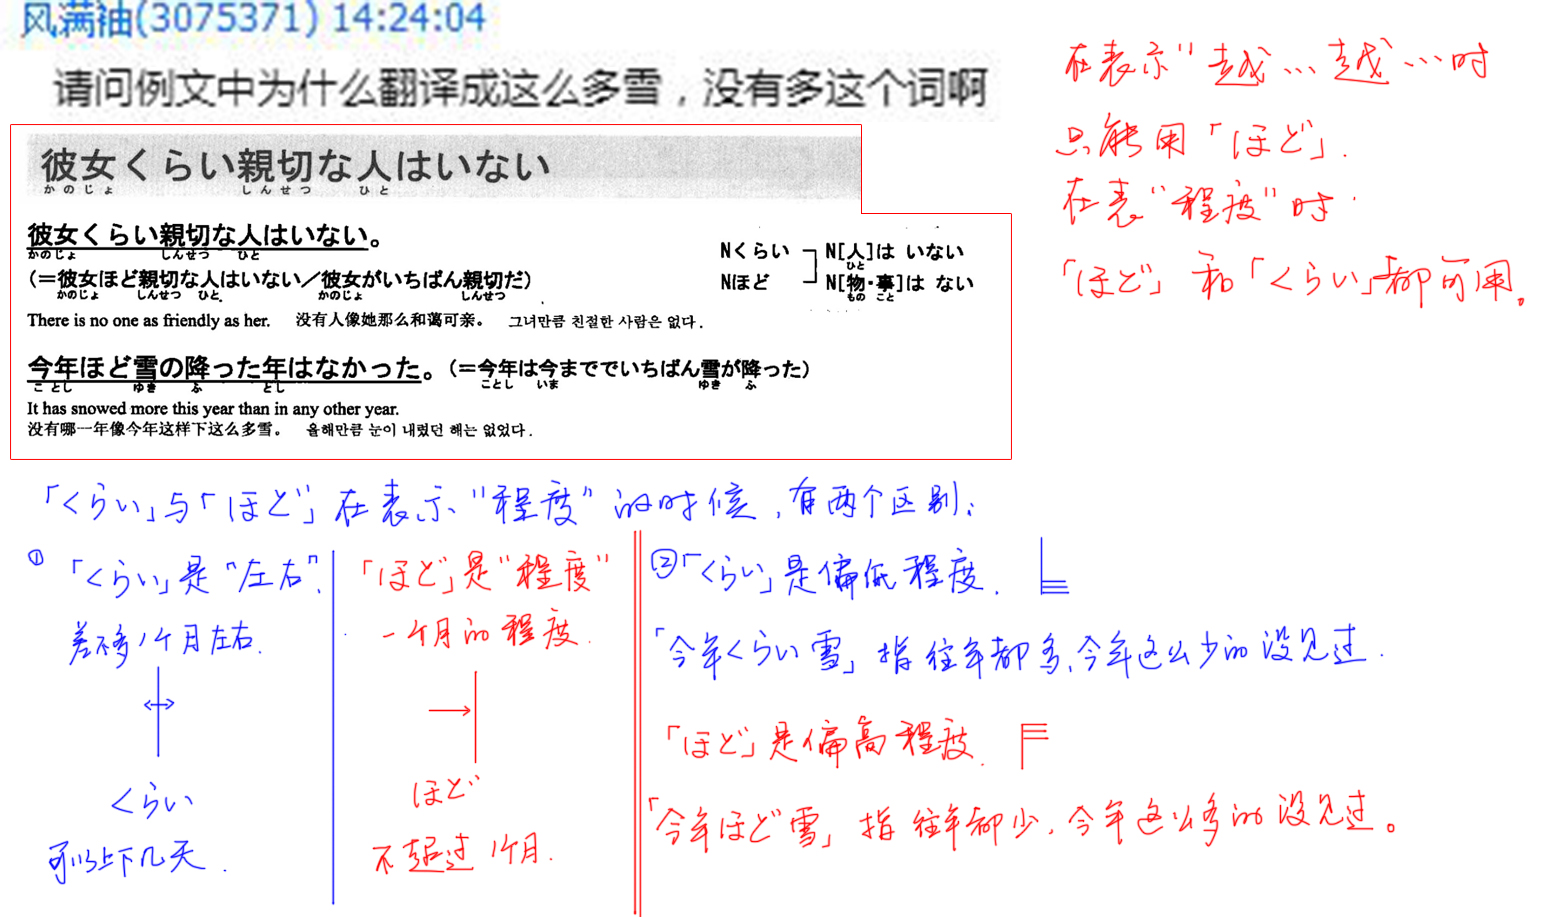 风满袖(3075371) 14:24:04
请问例文中为什么翻译成这么多雪，没有多这个词啊
彼女くらい親切な人はいない
かのじょ しんせつ ひと
彼女くらい親切な人はいない。
かのじょ しんせつ ひと
(＝彼女ほど親切な人はいない／彼女がいちばん親切だ)
かのじょ しんせつ ひと かのじょ しんせつ
There is no one as friendly as her. 没有人像她那么和蔼可亲。 그녀만큼 친절한 사람은 없다.
Nくらい N[人]は いない
ひと
Nほど N[物・事]は ない
もの こと
今年ほど雪の降った年はなかった。(＝今年は今まででいちばん雪が降った)
ことし ゆき ふ とし ことし いま ゆき ふ
It has snowed more this year than in any other year.
没有哪一年像今年这样下这么多雪。 올해만큼 눈이 내렸던 해는 없었다.
在表示“越…越…时
只能用「ほど」.
在表“程度”时.
「ほど」和「くらい」都可用。
「くらい」与「ほど」在表示“程度”的时候,有两个区别:
①「くらい」是“左右”.
差不多1个月左右.
くらい
可以上下几天.
「ほど」是“程度”
一个月的程度.
ほど
不超过1个月.
②「くらい」是偏低程度.
「今年くらい雪」指往年都多,今年这么少的没见过.
「ほど」是偏高程度.
「今年ほど雪」指往年都少,今年这么多的没见过。